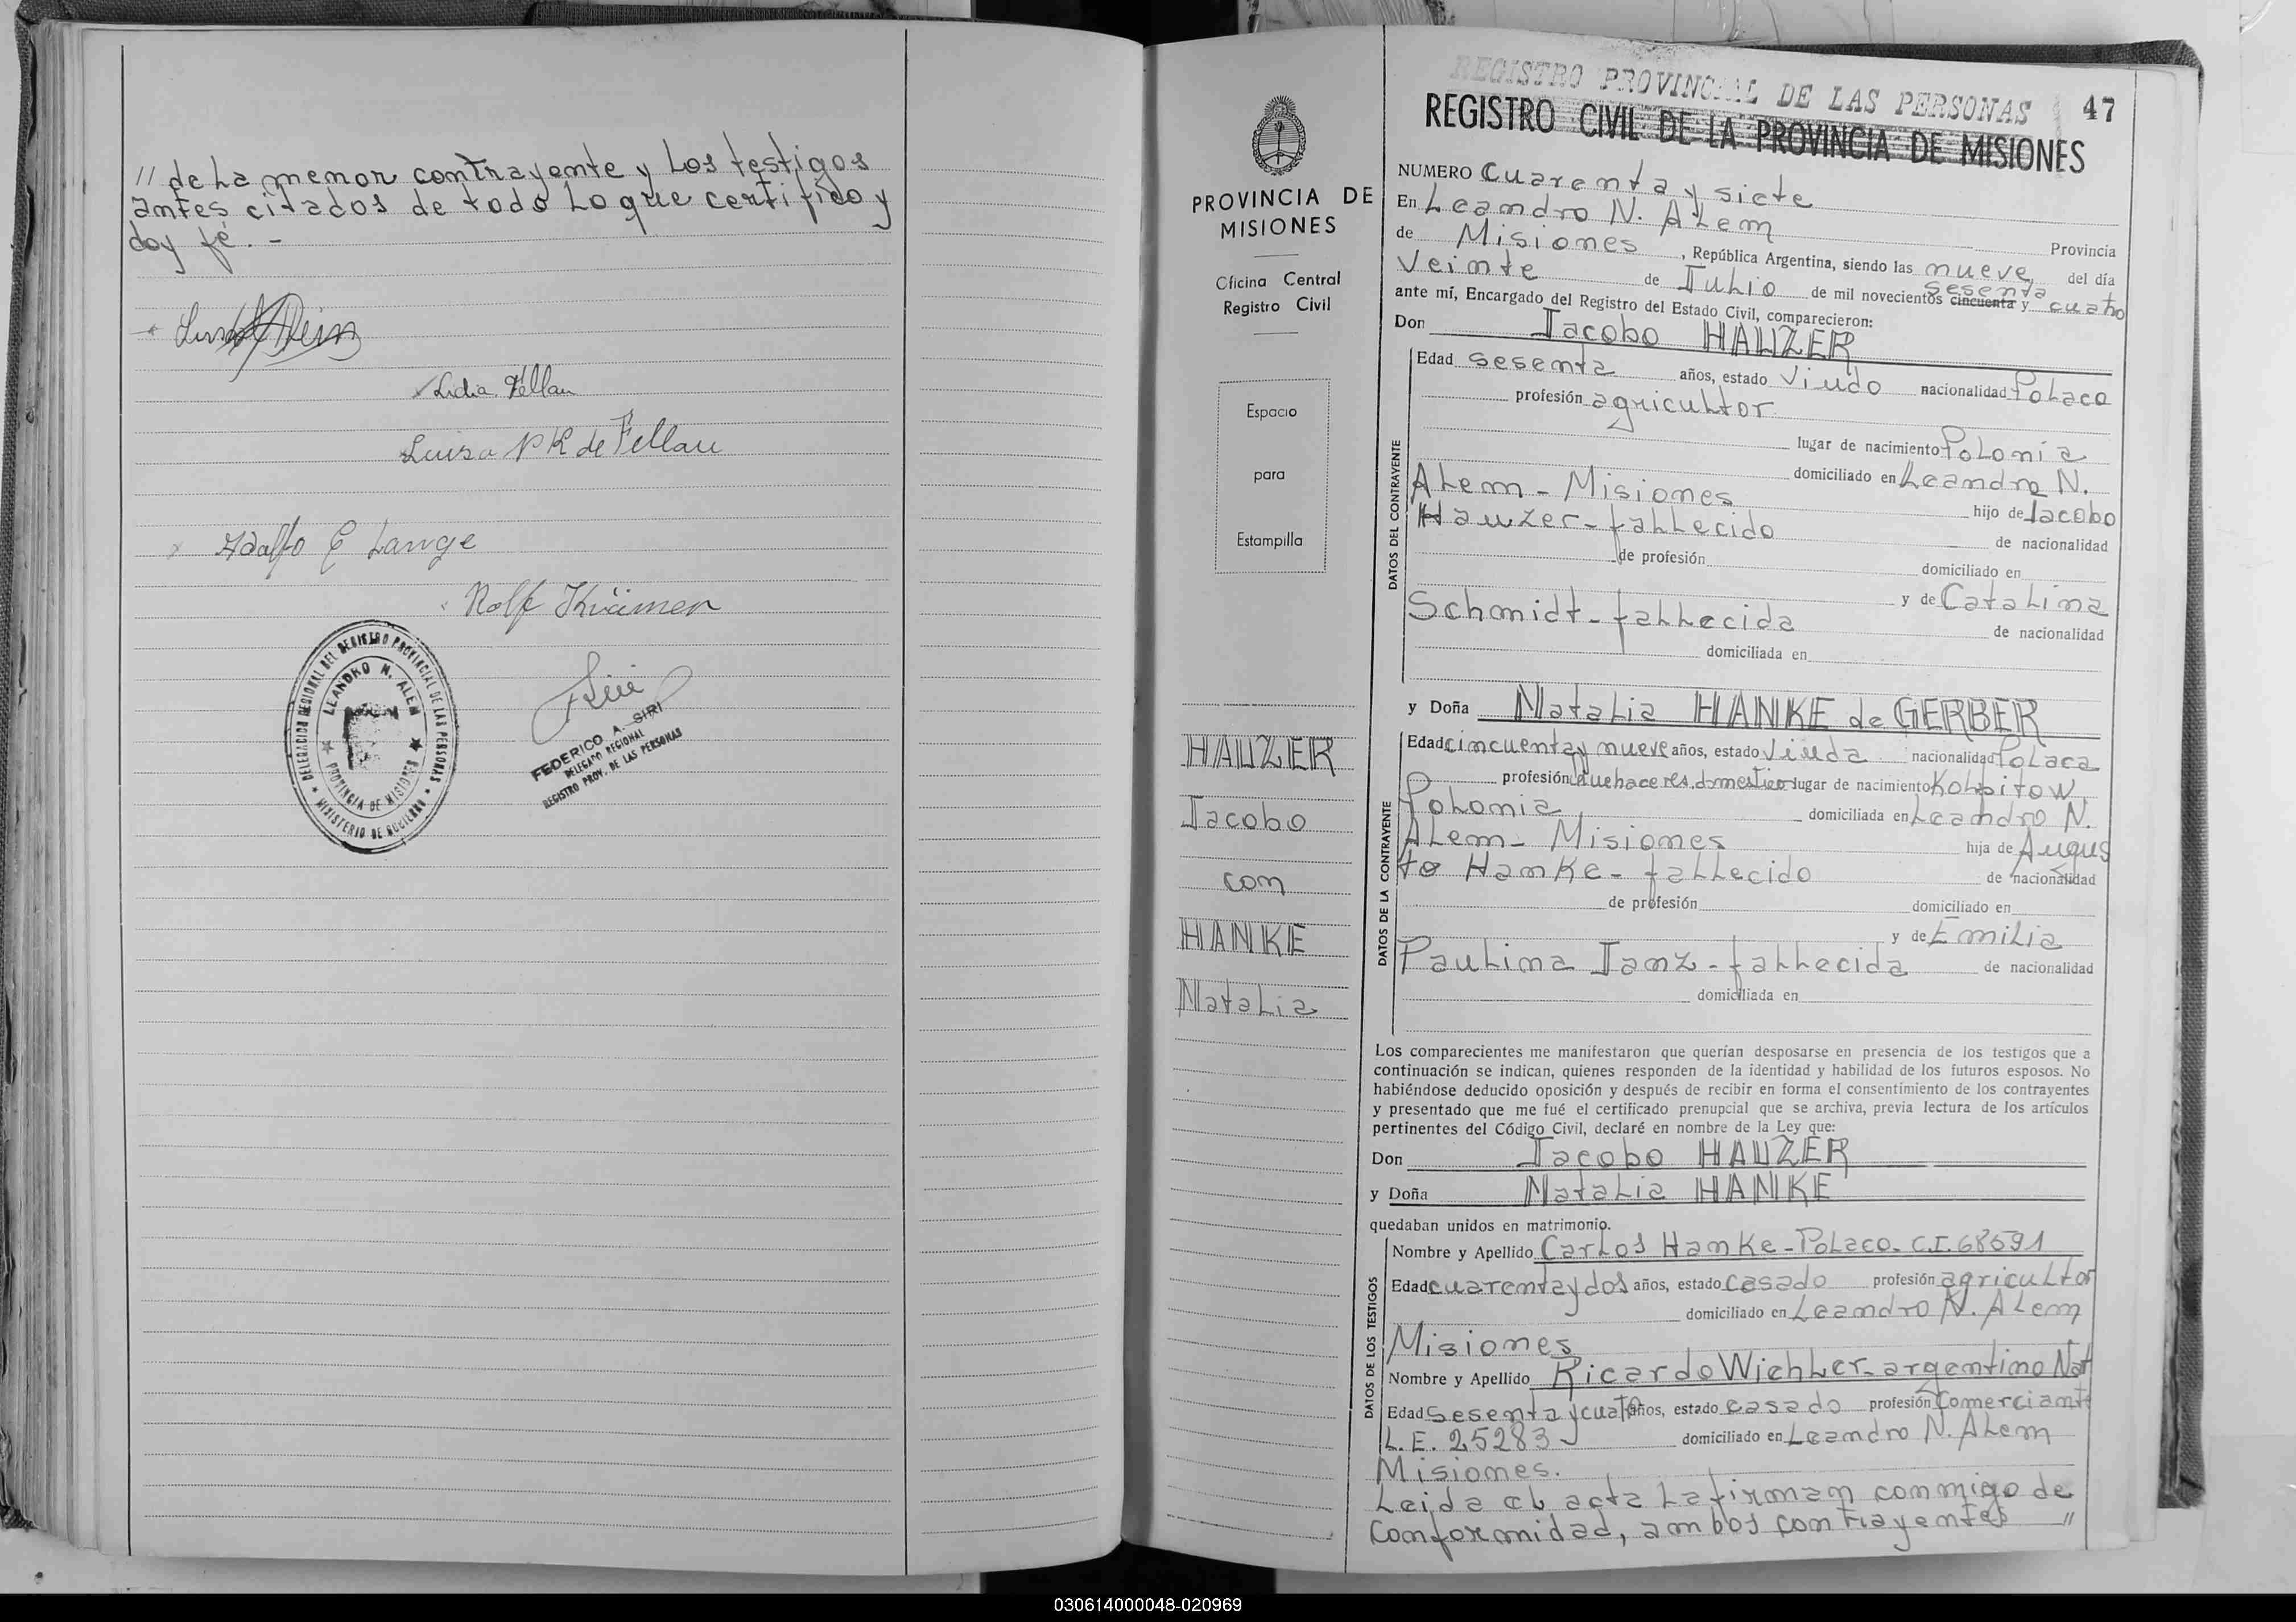 // de la menor contrayente y los testigos
antes citados de todo lo que certifico y
doy fé. -
Lidia Fellau
Luisa N K de Fellau
Adolfo E Lange
Rolf Krämer
DELEGACION REGIONAL DEL REGISTRO PROVINCIAL DE LAS PERSONAS
LEANDRO N. ALEM
PROVINCIA DE MISIONES
MINISTERIO DE GOBIERNO
FEDERICO A. SIRI
DELEGADO REGIONAL
REGISTRO PROV. DE LAS PERSONAS
PROVINCIA DE
MISIONES
Oficina Central
Registro Civil
Espacio
para
Estampilla
HAUZER
Jacobo
con
HANKE
Natalia
REGISTRO PROVINCIAL DE LAS PERSONAS
47
REGISTRO CIVIL DE LA PROVINCIA DE MISIONES
NUMERO cuarenta y siete
En Leandro N. Alem
Provincia
de Misiones, República Argentina, siendo las nueve del día
veinte de Julio de mil novecientos cincuenta sesenta y cuatro
ante mí, Encargado del Registro del Estado Civil, comparecieron:
Don Jacobo HAUZER
DATOS DEL CONTRAYENTE
Edad sesenta años, estado viudo nacionalidad Polaco
profesión agricultor
lugar de nacimiento Polonia
domiciliado en Leandro N.
Alem - Misiones
hijo de Jacobo
Hauzer - fallecido
de nacionalidad
de profesión domiciliado en
y de Catalina
Schmidt - fallecida
de nacionalidad
domiciliada en
y Doña Natalia HANKE de GERBER
DATOS DE LA CONTRAYENTE
Edad cincuenta y nueve años, estado viuda nacionalidad Polaca
profesión quehaceres domestico lugar de nacimiento Kolpitow
Polonia domiciliada en Leandro N.
Alem - Misiones
hija de Augus
to Hanke - fallecido
de nacionalidad
de profesión domiciliado en
y de Emilia
Paulina Janz - fallecida
de nacionalidad
domiciliada en
Los comparecientes me manifestaron que querían desposarse en presencia de los testigos que a
continuación se indican, quienes responden de la identidad y habilidad de los futuros esposos. No
habiéndose deducido oposición y después de recibir en forma el consentimiento de los contrayentes
y presentado que me fué el certificado prenupcial que se archiva, previa lectura de los artículos
pertinentes del Código Civil, declaré en nombre de la Ley que:
Don Jacobo HAUZER
y Doña Natalia HANKE
quedaban unidos en matrimonio.
DATOS DE LOS TESTIGOS
Nombre y Apellido Carlos Hanke - Polaco. C.I. 68691
Edad cuarenta y dos años, estado casado profesión agricultor
domiciliado en Leandro N. Alem
Misiones
Nombre y Apellido Ricardo Wiehler - argentino Nat
Edad sesenta y cuatro años, estado casado profesión Comerciante
L.E. 25283 domiciliado en Leandro N. Alem
Misiones.
Leida el acta la firman conmigo de
conformidad, ambos contrayentes //
030614000048-020969